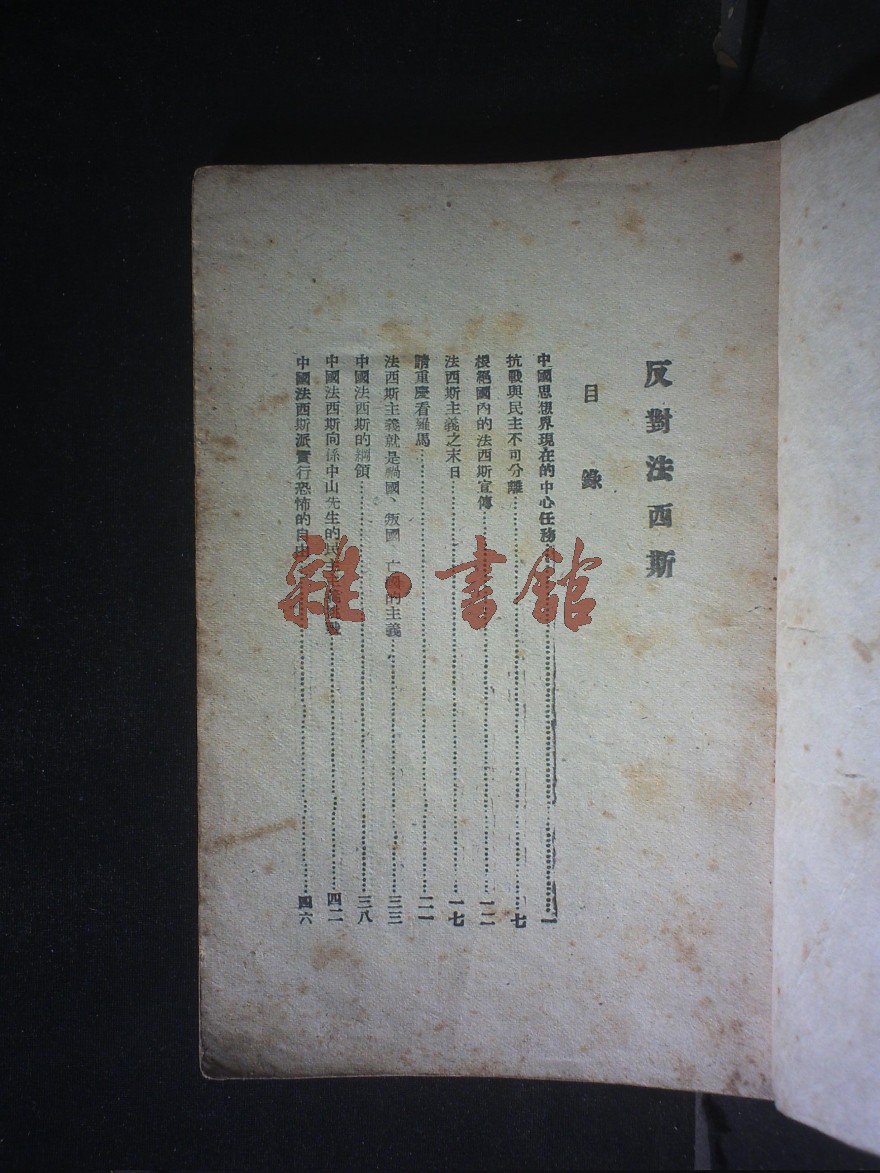 反對法西斯
目錄
中國思想界現在的中心任務……一
抗戰與民主不可分離……七
根絕國內的法西斯宣傳……一二
法西斯主義之末日……一七
請重慶看羅馬……二一
法西斯主義就是禍國、叛國、亡國的主義……三三
中國法西斯的綱領……三八
中國法西斯向孫中山先生的民主主義……四二
中國法西斯派實行恐怖的自由……四六
雜·書館